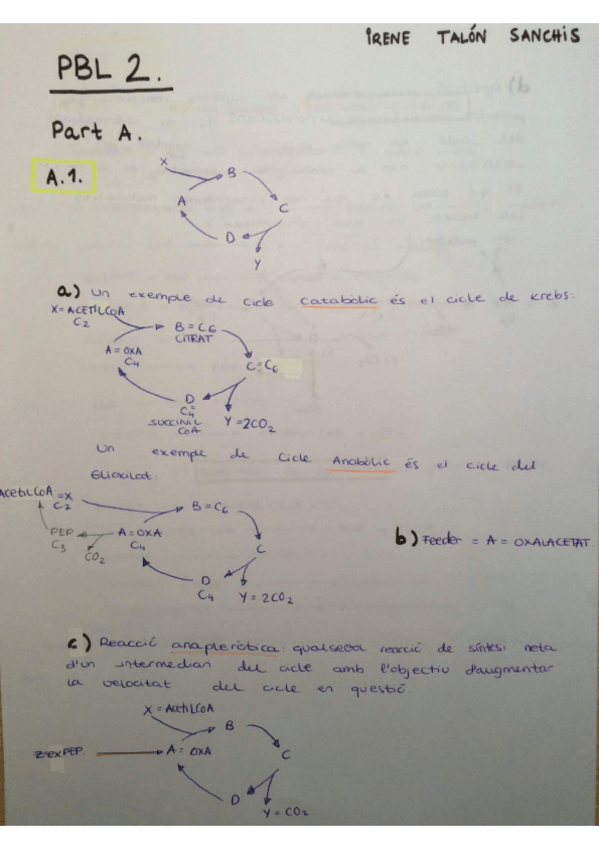 IRENE TALÓN SANCHIS
PBL 2.
Part A.
A.1.
X
B
A
C
D
Y
a) Un exemple de cicle catabòlic és el cicle de Krebs:
X = ACETILCOA
C2
B = C6
CITRAT
A = OXA
C4
C = C6
D
C4 =
SUCCINIL
COA
Y = 2CO2
Un exemple de cicle Anabòlic és el cicle del
Glioxilat:
AcetilCOA = X
C2
B = C6
PEP
C3
CO2
A = OXA
C4
C
D
C4
Y = 2CO2
b) Feeder = A = OXALACETAT.
c) Reacció anapleròtica: qualsevol reacció de síntesi neta
d'un intermediari del cicle amb l'objectiu d'augmentar
la velocitat del cicle en questió.
X = AcetilCoA
B
Z:ex PEP
A = OXA
C
D
Y = CO2